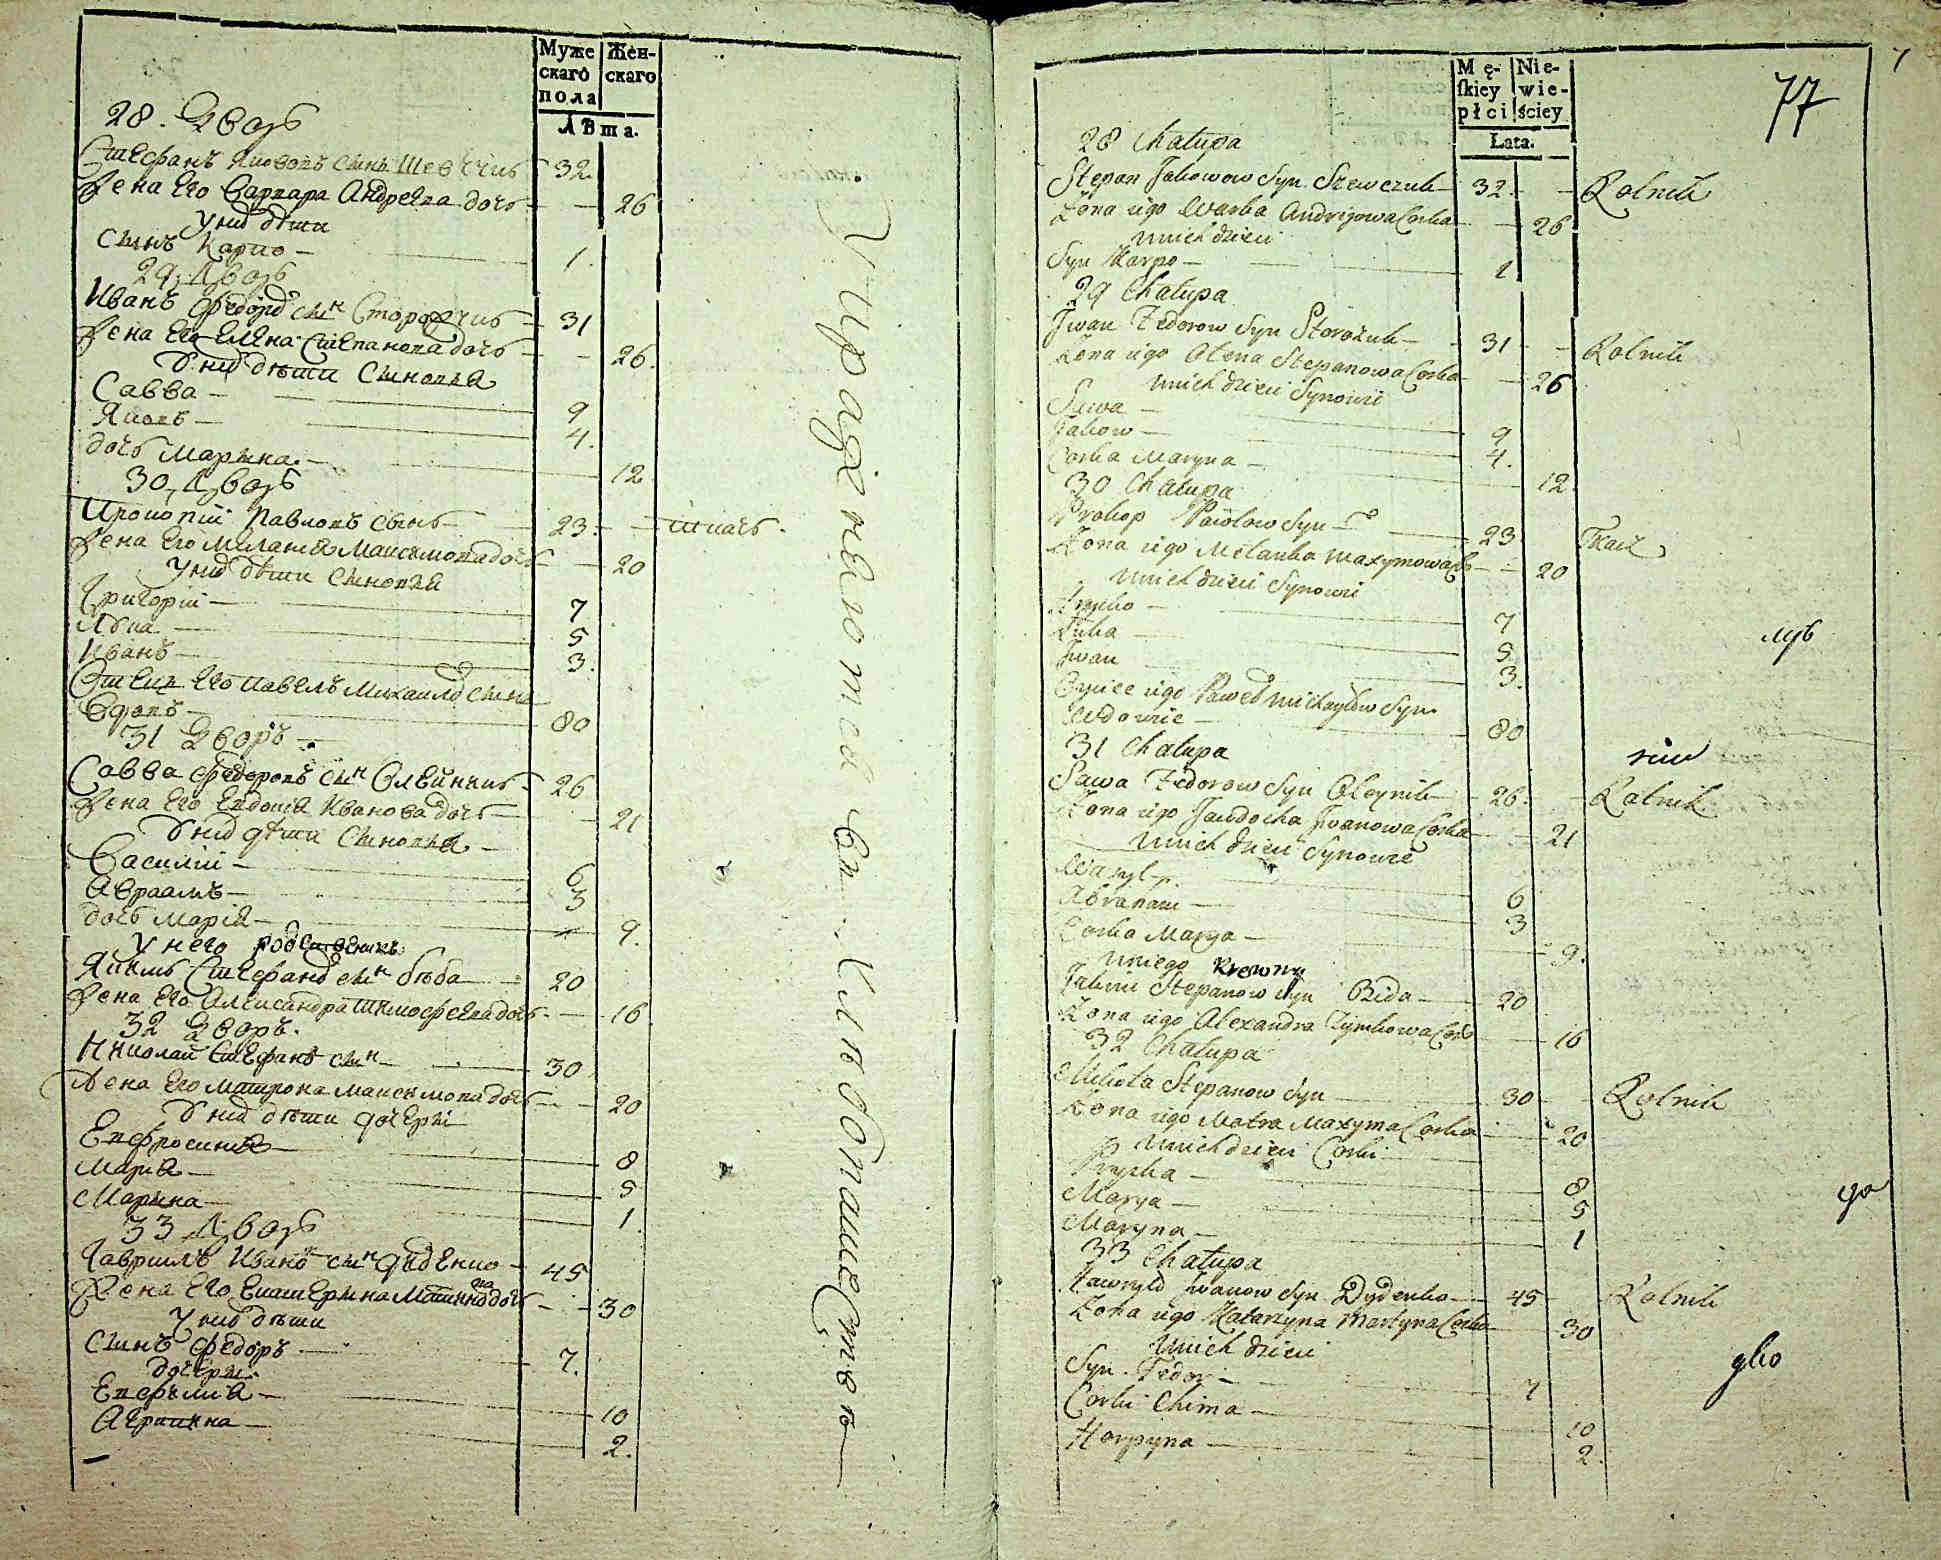 Муже Жен-
скаго скаго
пола
Лѣта.
28. Дворъ
Стефанъ Якововъ сынъ Шевчикъ 32
Жена Его Варвара Андреева дочь 26
У них дѣти
Сынъ Карпо 1
29. Дворъ
Иванъ Федоров сын Сторожчикъ 31
Жена Его Елена Степанова дочь 26
У них дѣти Сыновья
Савва 9
Яковъ 4
дочь Марина 12
30. Дворъ
Прокопий Павловъ сынъ 23 ткачъ
Жена Его Мелания Максимова дочь 20
У них дѣти Сыновья
Григорий 7
Лука 5
Иванъ 3
Отецъ Его Павелъ Михайлов сынъ
Вдовъ 80
31 Дворъ
Савва Федоровъ сын Олейникъ 26
Жена Его Евдокия Иванова дочь 21
У них дѣти Сыновья
Василий 6
Авраамъ 3
дочь Мария 9
У него родственикъ
Якимъ Стефанов сын Бѣда 20
Жена Его Александра Тимофеева дочь 16
32 Дворъ
Николай Стефанов сын 30
Жена Его Матрона Максимова дочь 20
У них дѣти дочери
Евфросиния 8
Мария 5
Марина 1
33 Дворъ
Гаврилъ Иванов сын Диденко 45
Жена Его Екатерина Мартинова дочь 30
У них дѣти
Сынъ Федоръ 7
дочери
Евфимия 10
Агрипина 2
Упражняются въ хлѣбопашествѣ
77
Mę- Nie-
ſkiey wie-
płci ściey
Lata.
28 Chałupa
Stepan Jakowow Syn Szewczuk 32 Rolnik
Żona iego Warka Andrijowa Corka 26
U nich dzieci
Syn Karpo 1
29 Chałupa
Iwan Fedorow Syn Storożuk 31 Rolnik
Żona iego Olena Stepanowa Corka 26
U nich dzieci Synowie
Sawa 9
Jakow 4
Corka Maryna 12
30 Chałupa
Prokop Pawłow Syn 23 Tkacz
Żona iego Melanka Maxymowa Cor 20
U nich dzieci Synowie
Hryćko 7
Łuka 5
Iwan 3
Oyciec iego Paweł Michayłow Syn
Wdowiec 80
31 Chałupa
Sawa Fedorow Syn Oleynik 26 Rolnik
Żona iego Jawdocha Iwanowa Corka 21
U nich dzieci Synowie
Wasyl 6
Abraham 3
Corka Marya 9
U niego Krewny
Jakim Stepanow Syn Bida 20
Żona iego Alexandra Tymkowa Cor 16
32 Chałupa
Mikoła Stepanow Syn 30 Rolnik
Żona iego Motra Maxyma Corka 20
U nich dzieci Corki
Pryśka 8
Marya 5
Maryna 1
33 Chałupa
Hawryło Iwanow Syn Dydenko 45 Rolnik
Żona iego Katarzyna Martyna Corka 30
U nich dzieci
Syn Fedor 7
Corki Chima 10
Horpyna 2